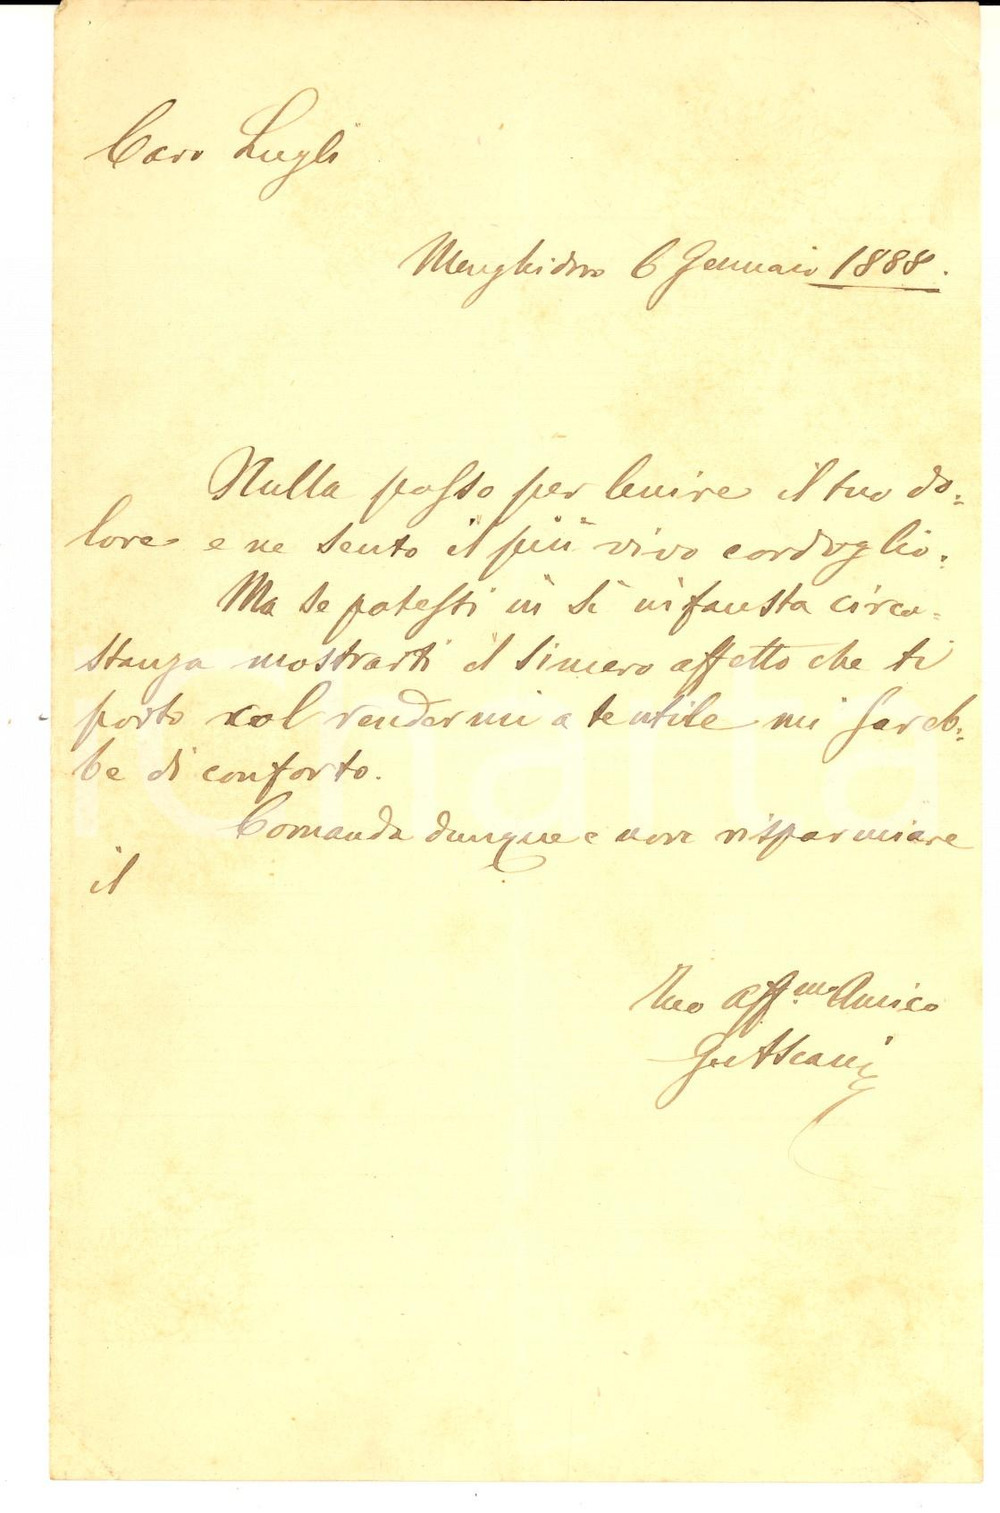 Caro Lugli
Menghidoro 6 Gennaio 1888.
Nulla posso per lenire il tuo do=
lore e ne sento il più vivo cordoglio.
Ma se potessi in sì infausta circo=
stanza mostrarti il sincero affetto che ti
porto col rendermi a te utile mi sareb=
be di conforto.
Comanda dunque e non risparmiare
il
Tuo affmo Amico